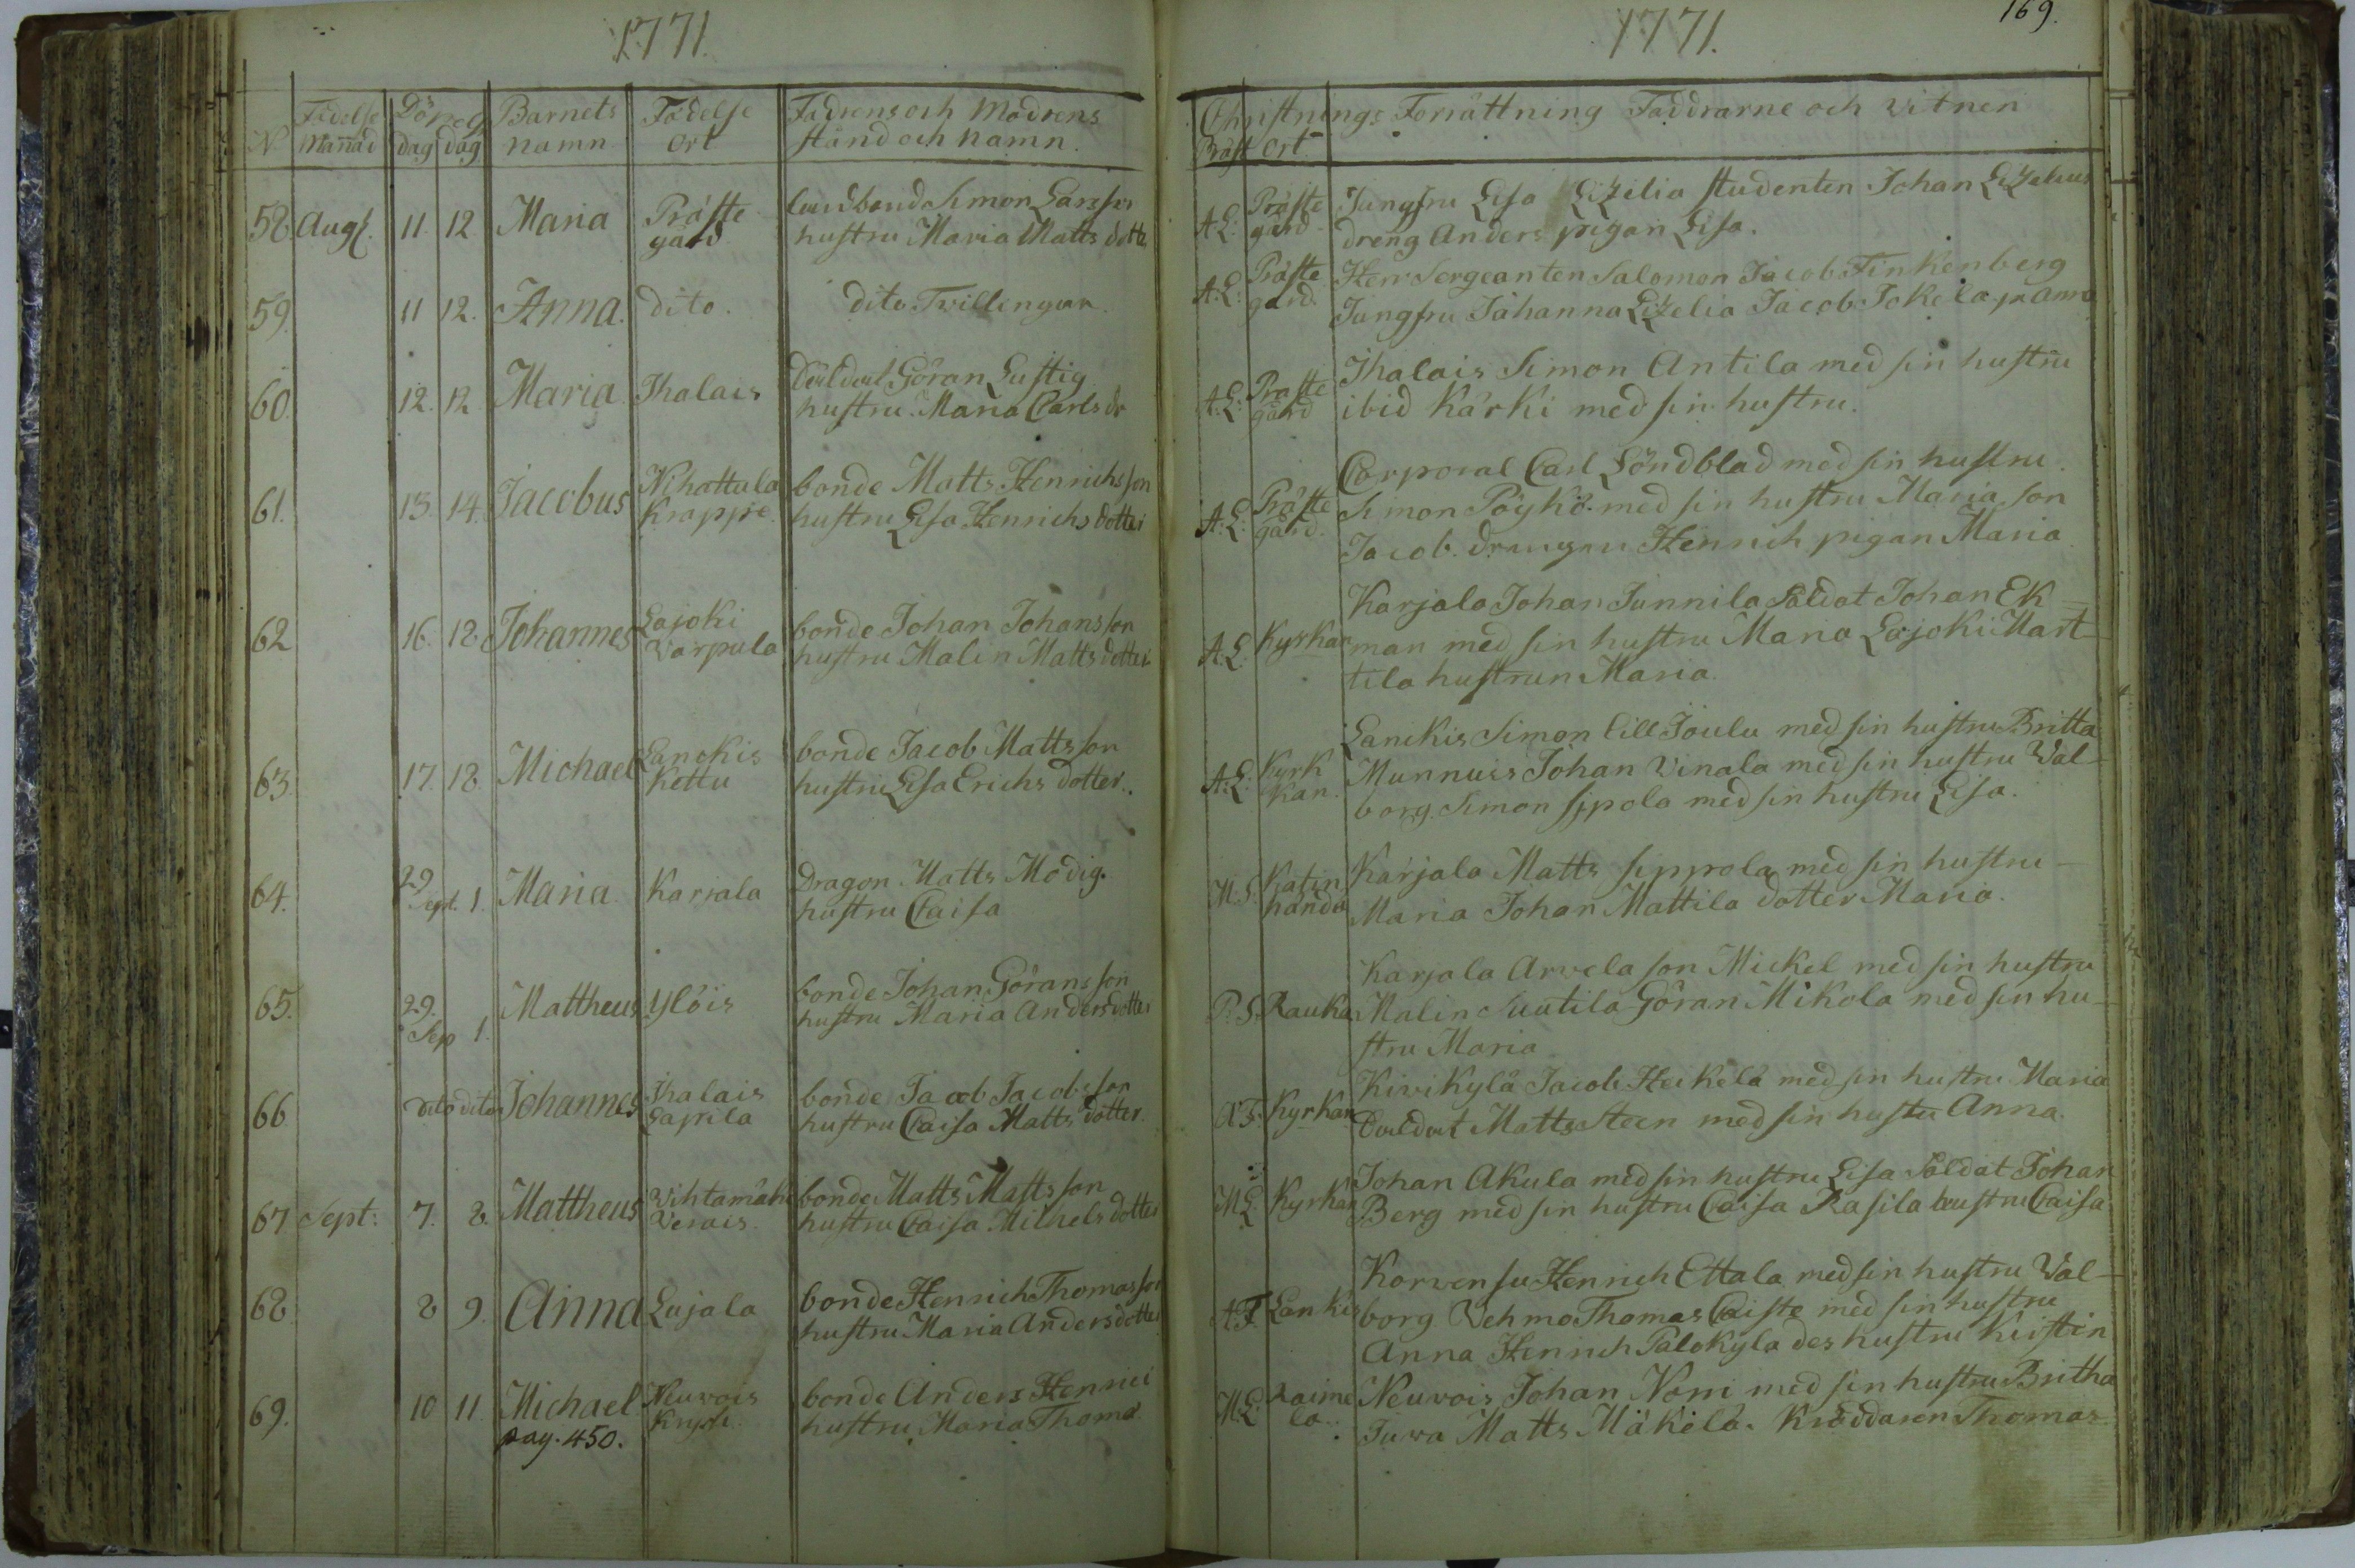 1771.
1771.
169.
N Födelse Månad Döpeg dag dag Barnets namn Födelse ort Fadrens och Modrens stånd och namn.
Christnings Forrättning Faddrarne och vitnen
Präst ort.
58. Aug. 11. 12 Maria Präste gård Simon Larsson
hustru Maria Matts dotte
A.L: Präste gård. Jungfru Lisa Lizelia studenten Johan Lizelius
dreng Anders pigan Lisa.
59. 11 12. Anna. dito. dito Tvillingar.
A.L: Präste gård. Herr Sergeanten Salomon Jacob Finkenberg
Jungfru Johanna Lizelia Jacob Jokela p. Anna
60. 12. 12 Maria. Ihalais Göran Lustig
hustru Maria Carls dr
A.L: Präste gård Ihalais Simon Antila med sin hustru
ibid Kärki med sin hustru.
61. 13. 14. Jacobus Nihattula Krappe. bonde Matts Henrichs son
hustru Lisa Henrichs dotter
A.L: Präste gård. Corporal Carl Söndblad med sin hustru
Simon Pöykö med sin hustru Maria, son
Jacob. drengen Henrich pigan Maria
62 16. 18 Johannes Lajoki Varpula bonde Johan Johans son
hustru Malin Matts dotter
A.L. Kyrkan Karjala Johan Junnila Saldat Johan Ek
man med sin hustru Maria Lajoki Mart-
tila hustrun Maria.
63. 17. 18 Michael Lanckis Kettu bonde Jacob Matts son
hustru Lisa Erichs dotter.
A.L: Kyrkkan. Lanckis Simon Lill Joulu med sin hustru Britta
Munnuis Johan Vinala med sin hustru Val-
borg. Simon Sipola med sin hustru Lisa.
64. 29 Sept. 1. Maria Karjala Dragon Matts Modig.
hustru Caisa
M.S. Katin händer Karjala Matts Sippola med sin hustru
Maria Johan Mattila dotter Maria.
65. 29. Sep 1. Mattheus Ylöis bonde Johan Görans son
hustru Maria Anders dotter
P.S. Rauka Karjala Arvela son Mickel med sin hustru
Malin Suutila Göran Mikola med sin hu-
stru Maria
66 dito dito Johannes Ihalais Saprila bonde Jacob Jacobs son
hustru Caisa Matts dotter.
Kyrkan Kivikylä Jacob Heikelä med sin hustru Maria
Matts Steen med sin hustru Anna.
67 Sept: 7. 8. Mattheus Vihtamäki Verais bonde Matts Matts son
hustru Caisa Milhels dotter
M.L Kyrkan Johan Akula med sin hustru Lisa Saldat Johan
Berg med sin hustru Caisa Rasila hustru Caisa
68 8 9. Anna Lajala bonde Henrich Thomas son
hustru Maria Anders dotter
A.F. Lankis Korvensu Henrich Ettala med sin hustru Val-
borg Vehmo Thomas Caiste med sin hustru
Anna Henrich Palokylä des hustru Kristin
69. 10 11. Michael Neuvois bonde Anders Henrici
pag. 450. hustru Maria Thoma
M.L. Raimela Neuvois Johan Norri med sin hustru Britha
Juva Matts Mäkelä. Thomas